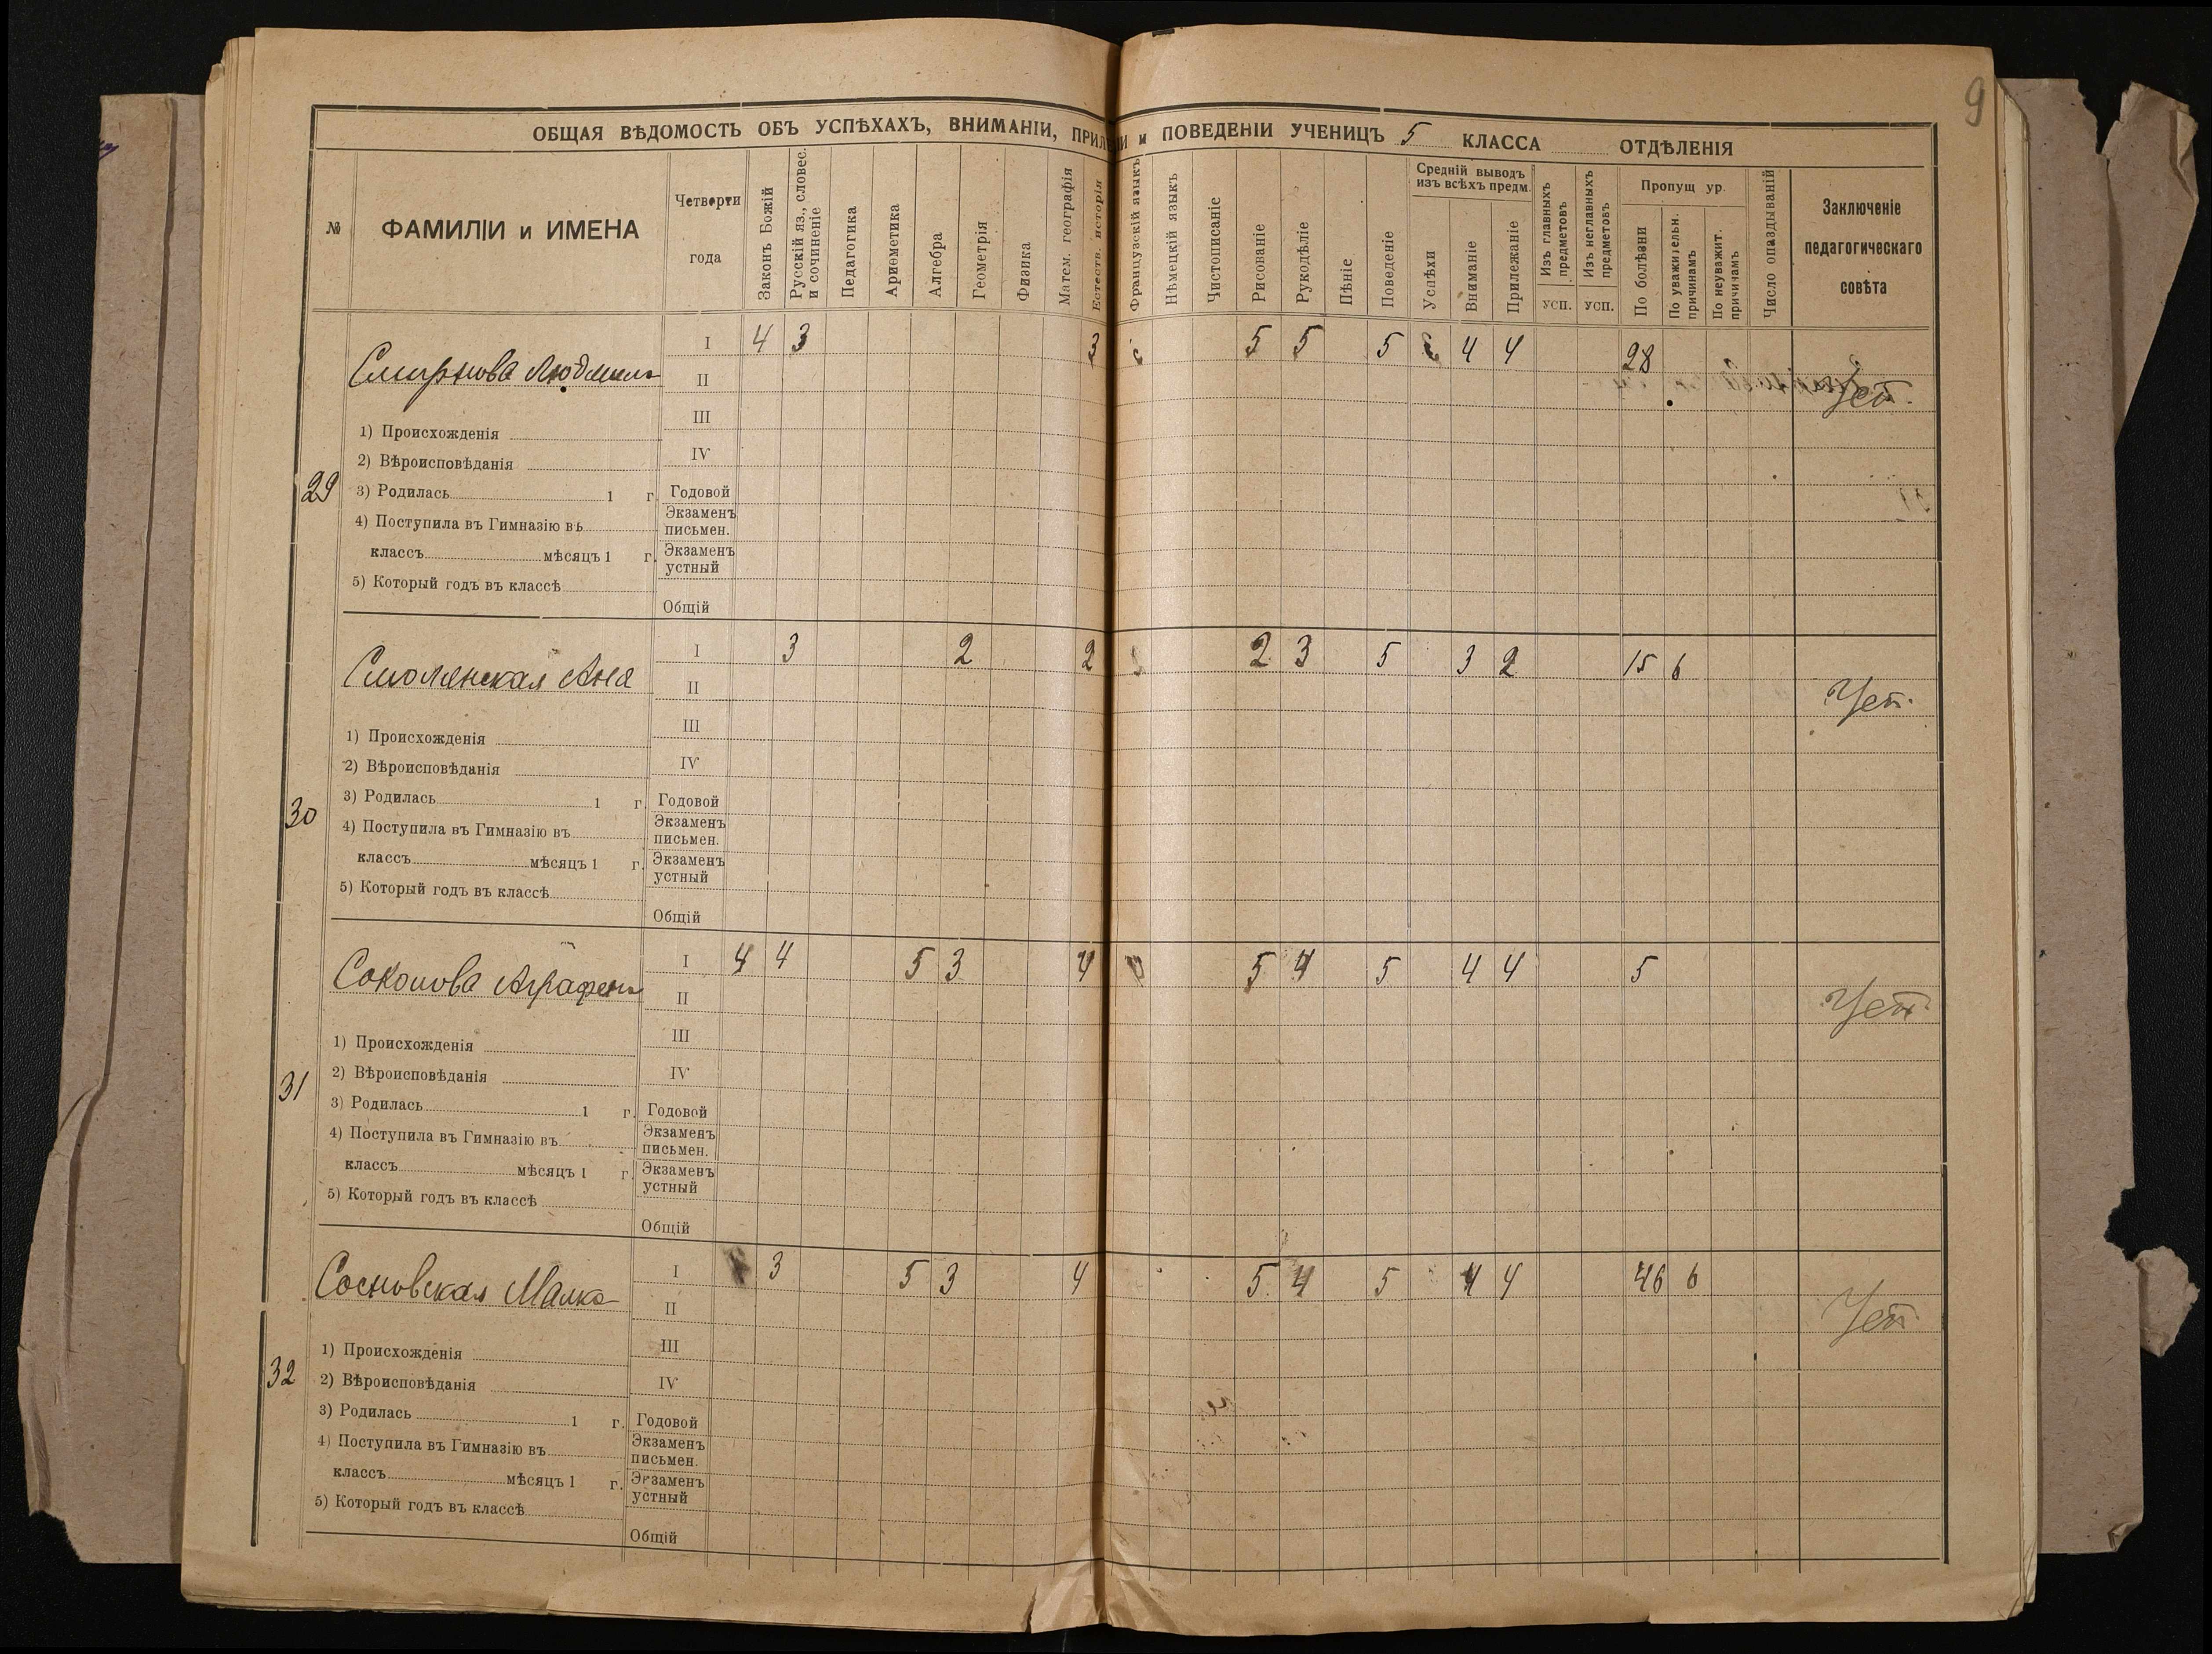 9
ОБЩАЯ ВѢДОМОСТЬ ОБЪ УСПѢХАХЪ, ВНИМАНІИ, ПРИЛ ІИ и ПОВЕДЕНІИ УЧЕНИЦЪ 5 КЛАССА ОТДѢЛЕНІЯ
№
ФАМИЛІИ и ИМЕНА
Четверти
года
Законъ Божій
Русскій яз., словес.
и сочиненіе
Педагогика
Ариѳметика
Алгебра
Геометрія
Физика
Матем. географія
Естеств. исторія
Французскій языкъ
Нѣмецкій языкъ
Чистописаніе
Рисованіе
Рукодѣліе
Пѣніе
Поведеніе
Средній выводъ
изъ всѣхъ предм.
Успѣхи
Вниманіе
Прилежаніе
Изъ главныхъ
предметовъ
усп.
Изъ неглавныхъ
предметовъ
усп.
Пропущ ур.
По болѣзни
По уважительн.
причинамъ
По неуважит.
причинамъ
Число опаздываній
Заключеніе
педагогическаго
совѣта
29
Смирнова Людмила
I 4 3 3 5 5 5 4 4 28
Уст.
II
III
1) Происхожденія
IV
2) Вѣроисповѣданія
3) Родилась 1 г. Годовой
4) Поступила въ Гимназію въ
Экзаменъ
письмен.
классъ мѣсяцъ 1 г.
Экзаменъ
устный
5) Который годъ въ классѣ
Общій
30
Смолянская Аня
I 3 2 2 2 3 5 3 2 15 6
Уст.
II
III
1) Происхожденія
IV
2) Вѣроисповѣданія
3) Родилась 1 г. Годовой
4) Поступила въ Гимназію въ
Экзаменъ
письмен.
классъ мѣсяцъ 1 г.
Экзаменъ
устный
5) Который годъ въ классѣ
Общій
31
Соколова Аграфена
I 4 4 5 3 4 5 4 5 4 4 5
Уст.
II
III
1) Происхожденія
IV
2) Вѣроисповѣданія
3) Родилась 1 г. Годовой
4) Поступила въ Гимназію въ
Экзаменъ
письмен.
классъ мѣсяцъ 1 г.
Экзаменъ
устный
5) Который годъ въ классѣ
Общій
32
Сосновская Малка
I 3 5 3 4 5 4 5 4 4 46 6
Уст
II
III
1) Происхожденія
IV
2) Вѣроисповѣданія
3) Родилась 1 г. Годовой
4) Поступила въ Гимназію въ
Экзаменъ
письмен.
классъ мѣсяцъ 1 г.
Экзаменъ
устный
5) Который годъ въ классѣ
Общій